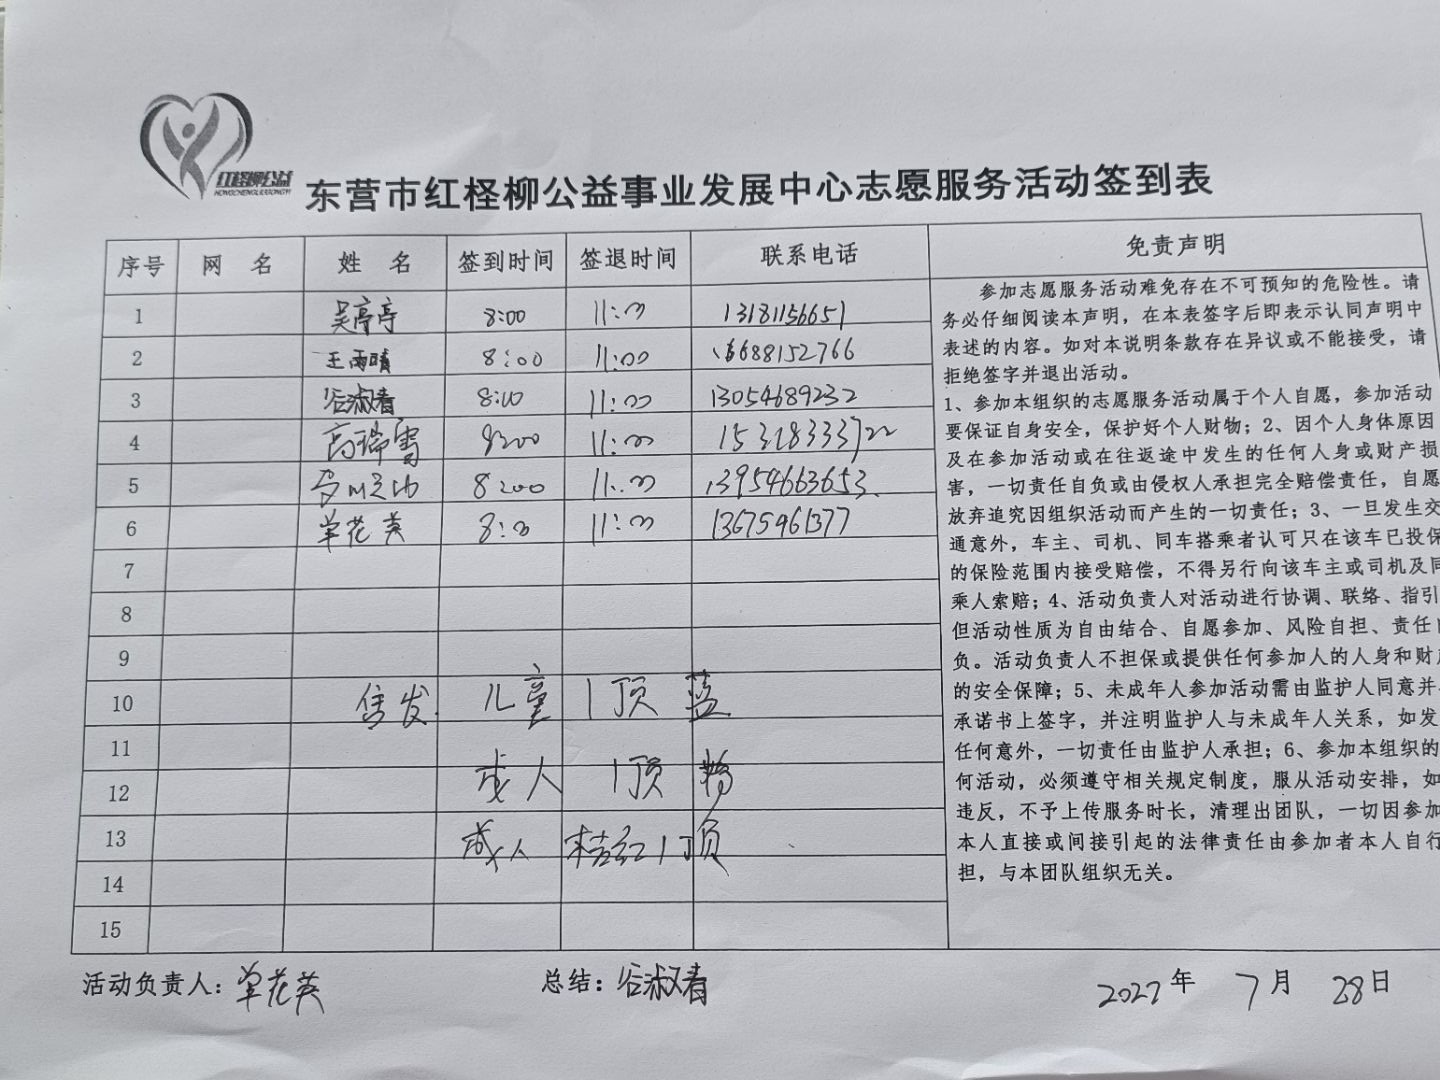 红柽柳公益
HONGCHENGLIUGONGYI
东营市红柽柳公益事业发展中心志愿服务活动签到表
序号 网 名 姓 名 签到时间 签退时间 联系电话 免责声明
1 吴亭亭 8:00 11:00 13181156651
2 王雨晴 8:00 11:00 16688152766
3 谷淑春 8:00 11:00 13054689232
4 高瑞雪 8:00 11:00 15318333722
5 8:00 11:00 13954663653
6 单花英 8:00 11:00 13675461377
7
8
9
10 售发 儿童 1顶 蓝
11
12 成人 1顶 粉
13 成人 桔红1顶
14
15
参加志愿服务活动难免存在不可预知的危险性。请
务必仔细阅读本声明，在本表签字后即表示认同声明中
表述的内容。如对本说明条款存在异议或不能接受，请
拒绝签字并退出活动。
1、参加本组织的志愿服务活动属于个人自愿，参加活动
要保证自身安全，保护好个人财物；2、因个人身体原因
及在参加活动或在往返途中发生的任何人身或财产损
害，一切责任自负或由侵权人承担完全赔偿责任，自愿
放弃追究因组织活动而产生的一切责任；3、一旦发生交
通意外，车主、司机、同车搭乘者认可只在该车已投保
的保险范围内接受赔偿，不得另行向该车主或司机及同
乘人索赔；4、活动负责人对活动进行协调、联络、指引
但活动性质为自由结合、自愿参加、风险自担、责任自
负。活动负责人不担保或提供任何参加人的人身和财产
的安全保障；5、未成年人参加活动需由监护人同意并
承诺书上签字，并注明监护人与未成年人关系，如发
任何意外，一切责任由监护人承担；6、参加本组织的
何活动，必须遵守相关规定制度，服从活动安排，如
违反，不予上传服务时长，清理出团队，一切因参加
本人直接或间接引起的法律责任由参加者本人自行
担，与本团队组织无关。
活动负责人：单花英 总结：谷淑春 2022年 7月 28日